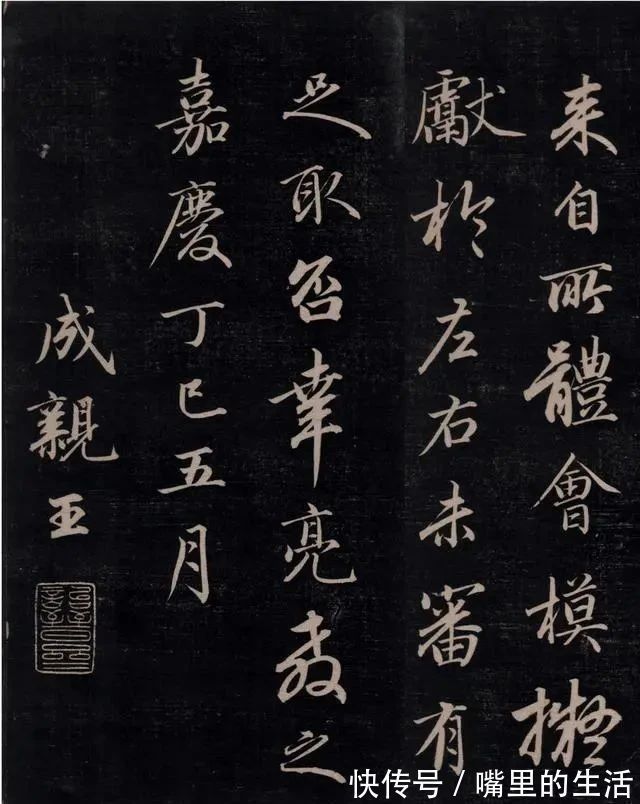 来自所體會模擬
獻於左右未審有
足取否幸亮教之
嘉慶丁巳五月
成親王
快传号 / 嘴里的生活